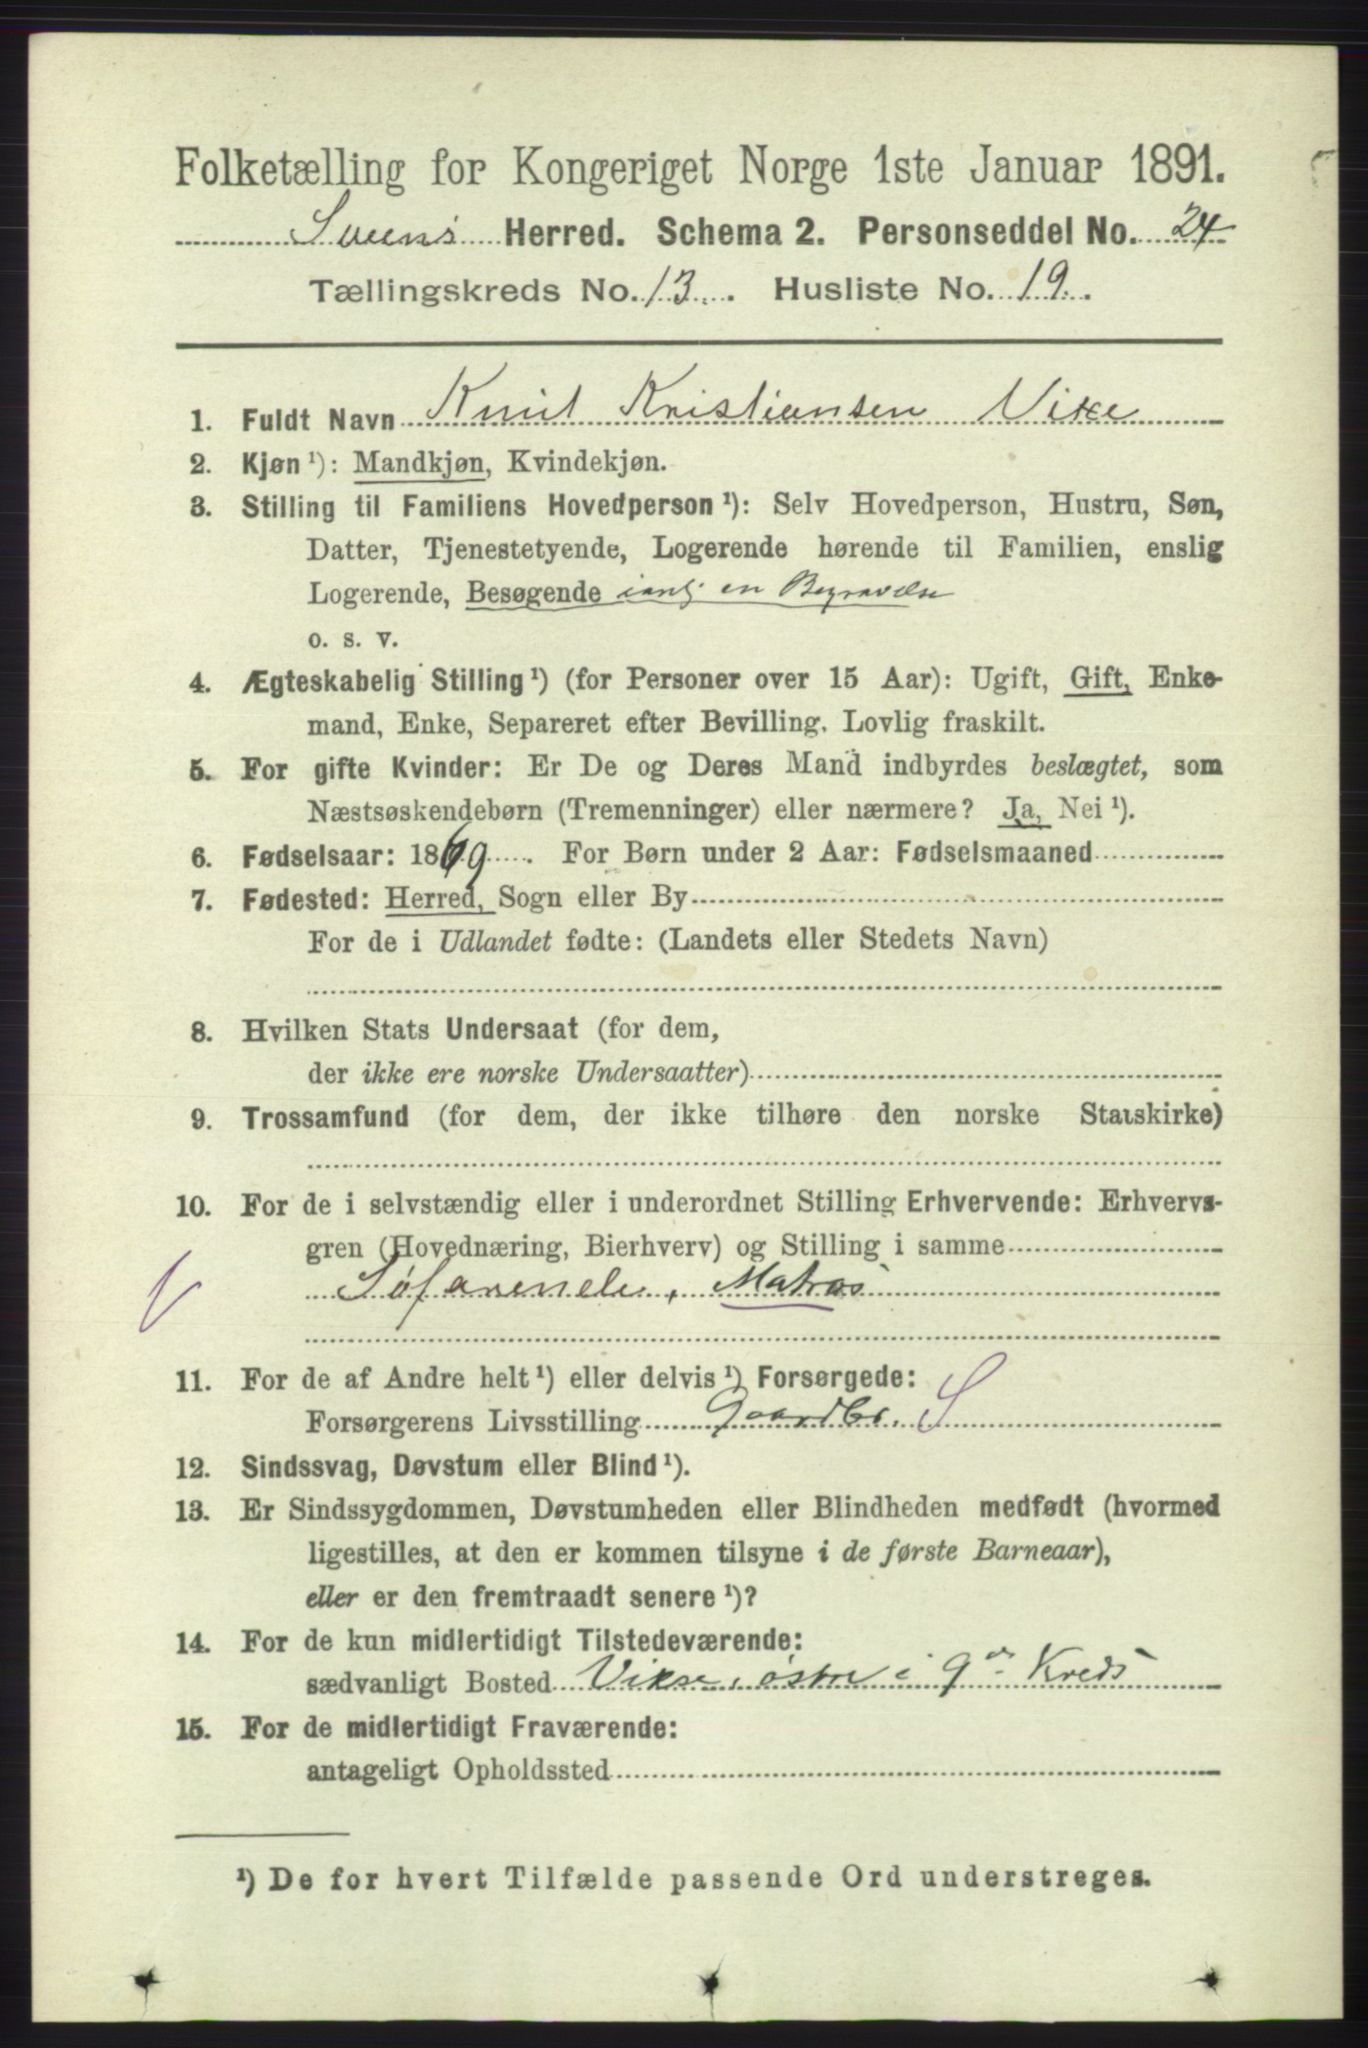 Folketælling for Kongeriget Norge 1ste Januar 1891.
Sveens Herred. Schema 2. Personseddel No. 24
Tællingskreds No. 13. Husliste No. 19.
1. Fuldt Navn Knut Kristiansen Vixe
2. Kjøn ¹): Mandkjøn, Kvindekjøn.
3. Stilling til Familiens Hovedperson ¹): Selv Hovedperson, Hustru, Søn,
Datter, Tjenestetyende, Logerende hørende til Familien, enslig
Logerende, Besøgende en Begravelse
o. s. v.
4. Ægteskabelig Stilling ¹) (for Personer over 15 Aar): Ugift, Gift, Enke-
mand, Enke, Separeret efter Bevilling. Lovlig fraskilt.
5. For gifte Kvinder: Er De og Deres Mand indbyrdes beslægtet, som
Næstsøskendebørn (Tremenninger) eller nærmere? Ja, Nei ¹).
6. Fødselsaar: 1869. For Børn under 2 Aar: Fødselsmaaned
7. Fødested: Herred, Sogn eller By
For de i Udlandet fødte: (Landets eller Stedets Navn)
8. Hvilken Stats Undersaat (for dem,
der ikke ere norske Undersaatter)
9. Trossamfund (for dem, der ikke tilhøre den norske Statskirke)
10. For de i selvstændig eller i underordnet Stilling Erhvervende: Erhvervs-
gren (Hovednæring, Bierhverv) og Stilling i samme
Søfarende, Matros
11. For de af Andre helt ¹) eller delvis ¹) Forsørgede:
Forsørgerens Livsstilling Gaardbr. S
12. Sindssvag, Døvstum eller Blind ¹).
13. Er Sindssygdommen, Døvstumheden eller Blindheden medfødt (hvormed
ligestilles, at den er kommen tilsyne i de første Barneaar),
eller er den fremtraadt senere ¹)?
14. For de kun midlertidigt Tilstedeværende:
sædvanligt Bosted Vikse, østre i 9de Kreds
15. For de midlertidigt Fraværende:
antageligt Opholdssted
¹) De for hvert Tilfælde passende Ord understreges.